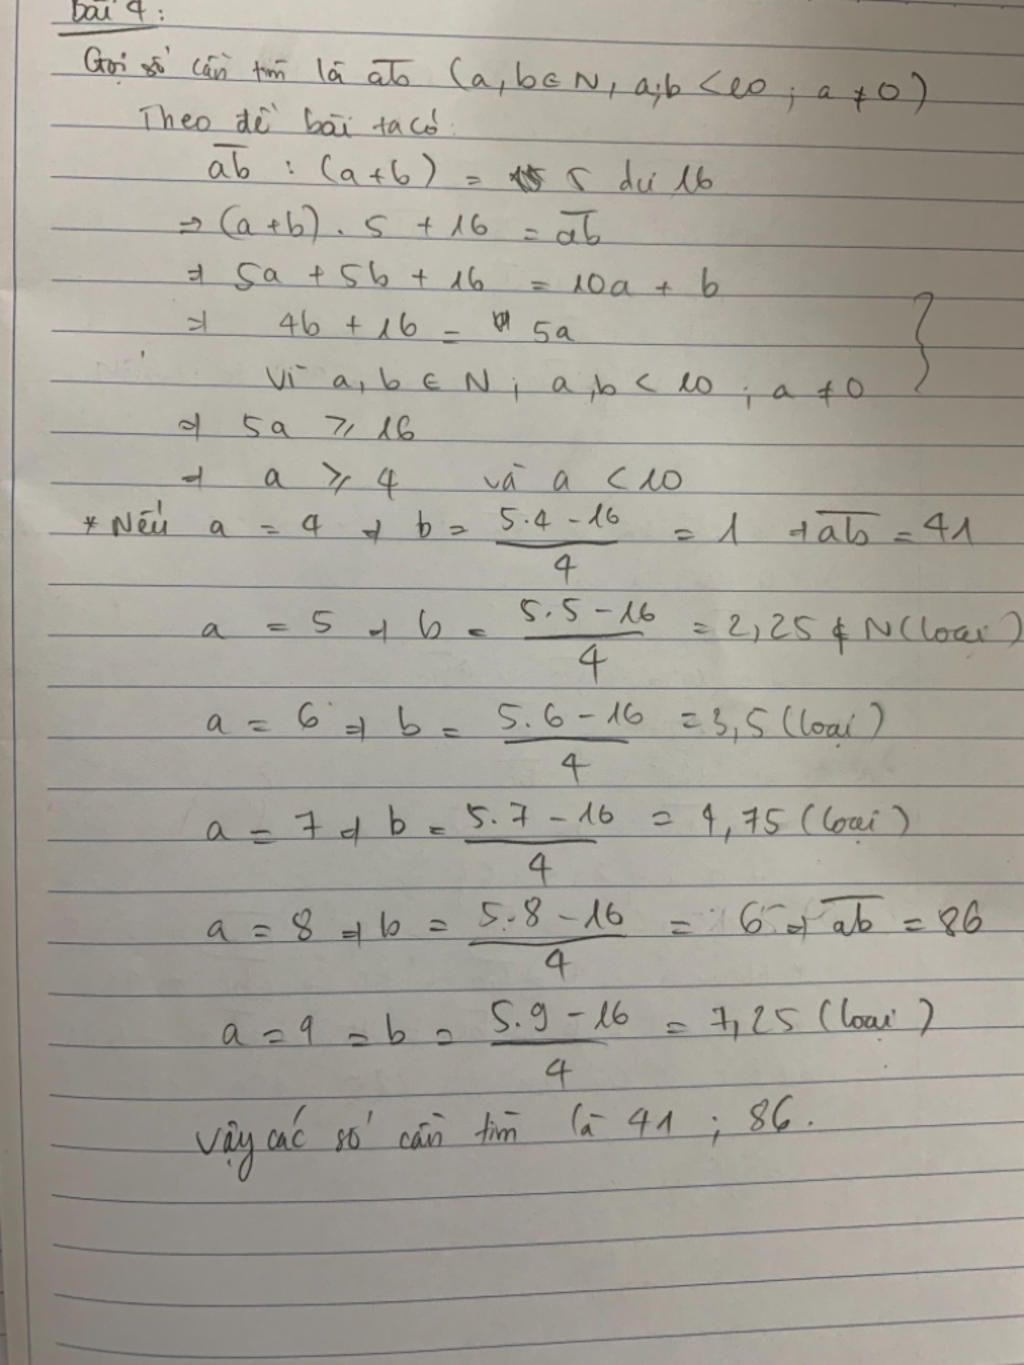 Bài 4:
Gọi số cần tìm là ab̅ (a, b ∈ N, a;b < 10 ; a ≠ 0)
Theo đề bài ta có:
a̅b̅ : (a+b) = 5 dư 16
⇒ (a+b) . 5 + 16 = a̅b̅
⇒ 5a + 5b + 16 = 10a + b
⇒ 4b + 16 = 5a
Vì a, b ∈ N ; a,b < 10 ; a ≠ 0 }
⇒ 5a ⩾ 16
⇒ a ⩾ 4 và a < 10
* Nếu a = 4 ⇒ b = (5.4 - 16)/4 = 1 ⇒ a̅b̅ = 41
a = 5 ⇒ b = (5.5 - 16)/4 = 2,25 ∉ N (loại)
a = 6 ⇒ b = (5.6 - 16)/4 = 3,5 (loại)
a = 7 ⇒ b = (5.7 - 16)/4 = 4,75 (loại)
a = 8 ⇒ b = (5.8 - 16)/4 = 6 ⇒ a̅b̅ = 86
a = 9 = b = (5.9 - 16)/4 = 7,25 (loại)
Vậy các số cần tìm là 41 ; 86.